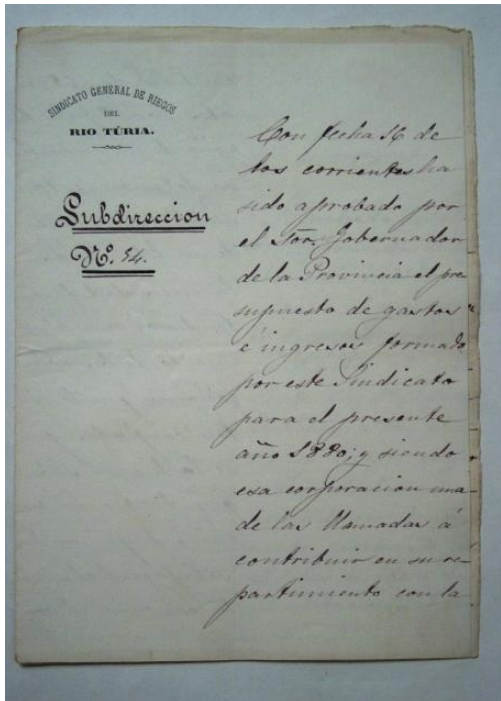 SINDICATO GENERAL DE RIEGOS
DEL
RIO TÚRIA.
Subdireccion
Nº. 54.
Con fecha 16 de
los corrientes ha
sido aprobado por
el Sor. Gobernador
de la Provincia el pre
supuesto de gastos
é ingresos formado
por este Sindicato
para el presente
año 1880; y siendo
esa corporacion una
de las llamadas á
contribuir en su re-
partimiento con la